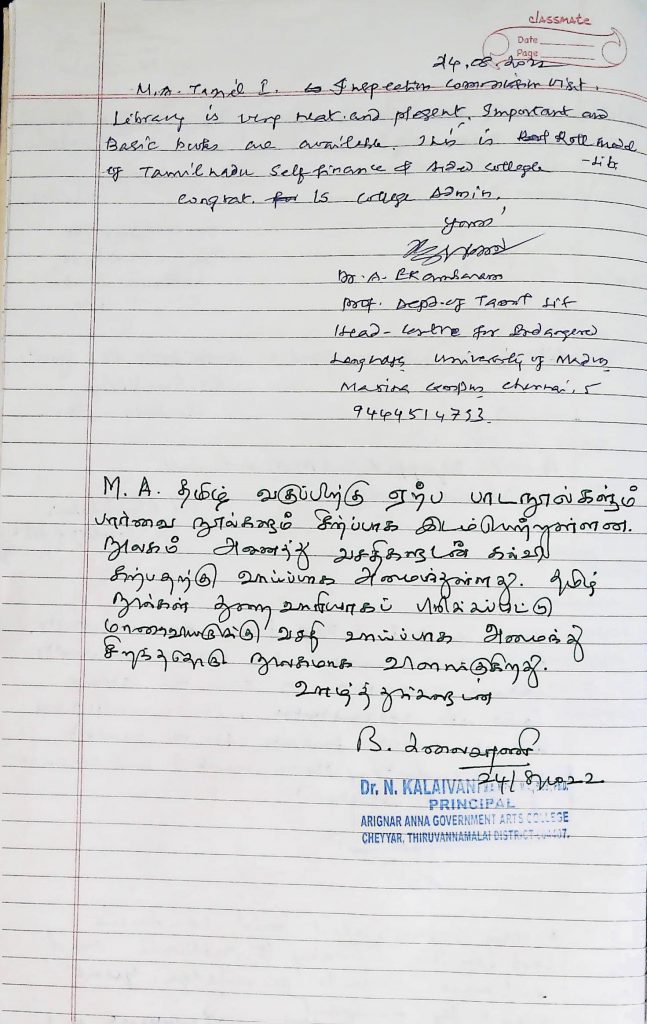 classmate
Date
Page
24.08.2022
M.A. Tamil I. Inspection Commission visit.
Library is very neat and plesent. Important and
Basic books are available. This is Roll model
of Tamilnadu Self finance & Aided college
congrat. for 15 college Admin.
Yours
Dr. A. Ekambaram
Prof. Dept. of Tamil Lit
Head - Centre for Endangered
Languages, University of Madras
Marina Campus, Chennai, 5
9444514793.
M. A. தமிழ் வகுப்பிற்கு ஏற்ப பாடநூல்களும்
பார்வை நூல்களும் சிறப்பாக இடம்பெற்றுள்ளன.
நூலகம் அனைத்து வசதிகளுடன் கல்வி
கற்பதற்கு வாய்ப்பாக அமைந்துள்ளது. தமிழ்
நூல்கள் துறை வாரியாகப் பிரிக்கப்பட்டு
மாணவர்களுக்கு வசதி வாய்ப்பாக அமைந்து
சிறந்ததொரு நூலகமாக விளங்குகிறது.
வாழ்த்துக்களுடன்
கலைவாணி
24/8/2022
Dr. N. KALAIVANI
PRINCIPAL
ARIGNAR ANNA GOVERNMENT ARTS COLLEGE
CHEYYAR, THIRUVANNAMALAI DISTRICT